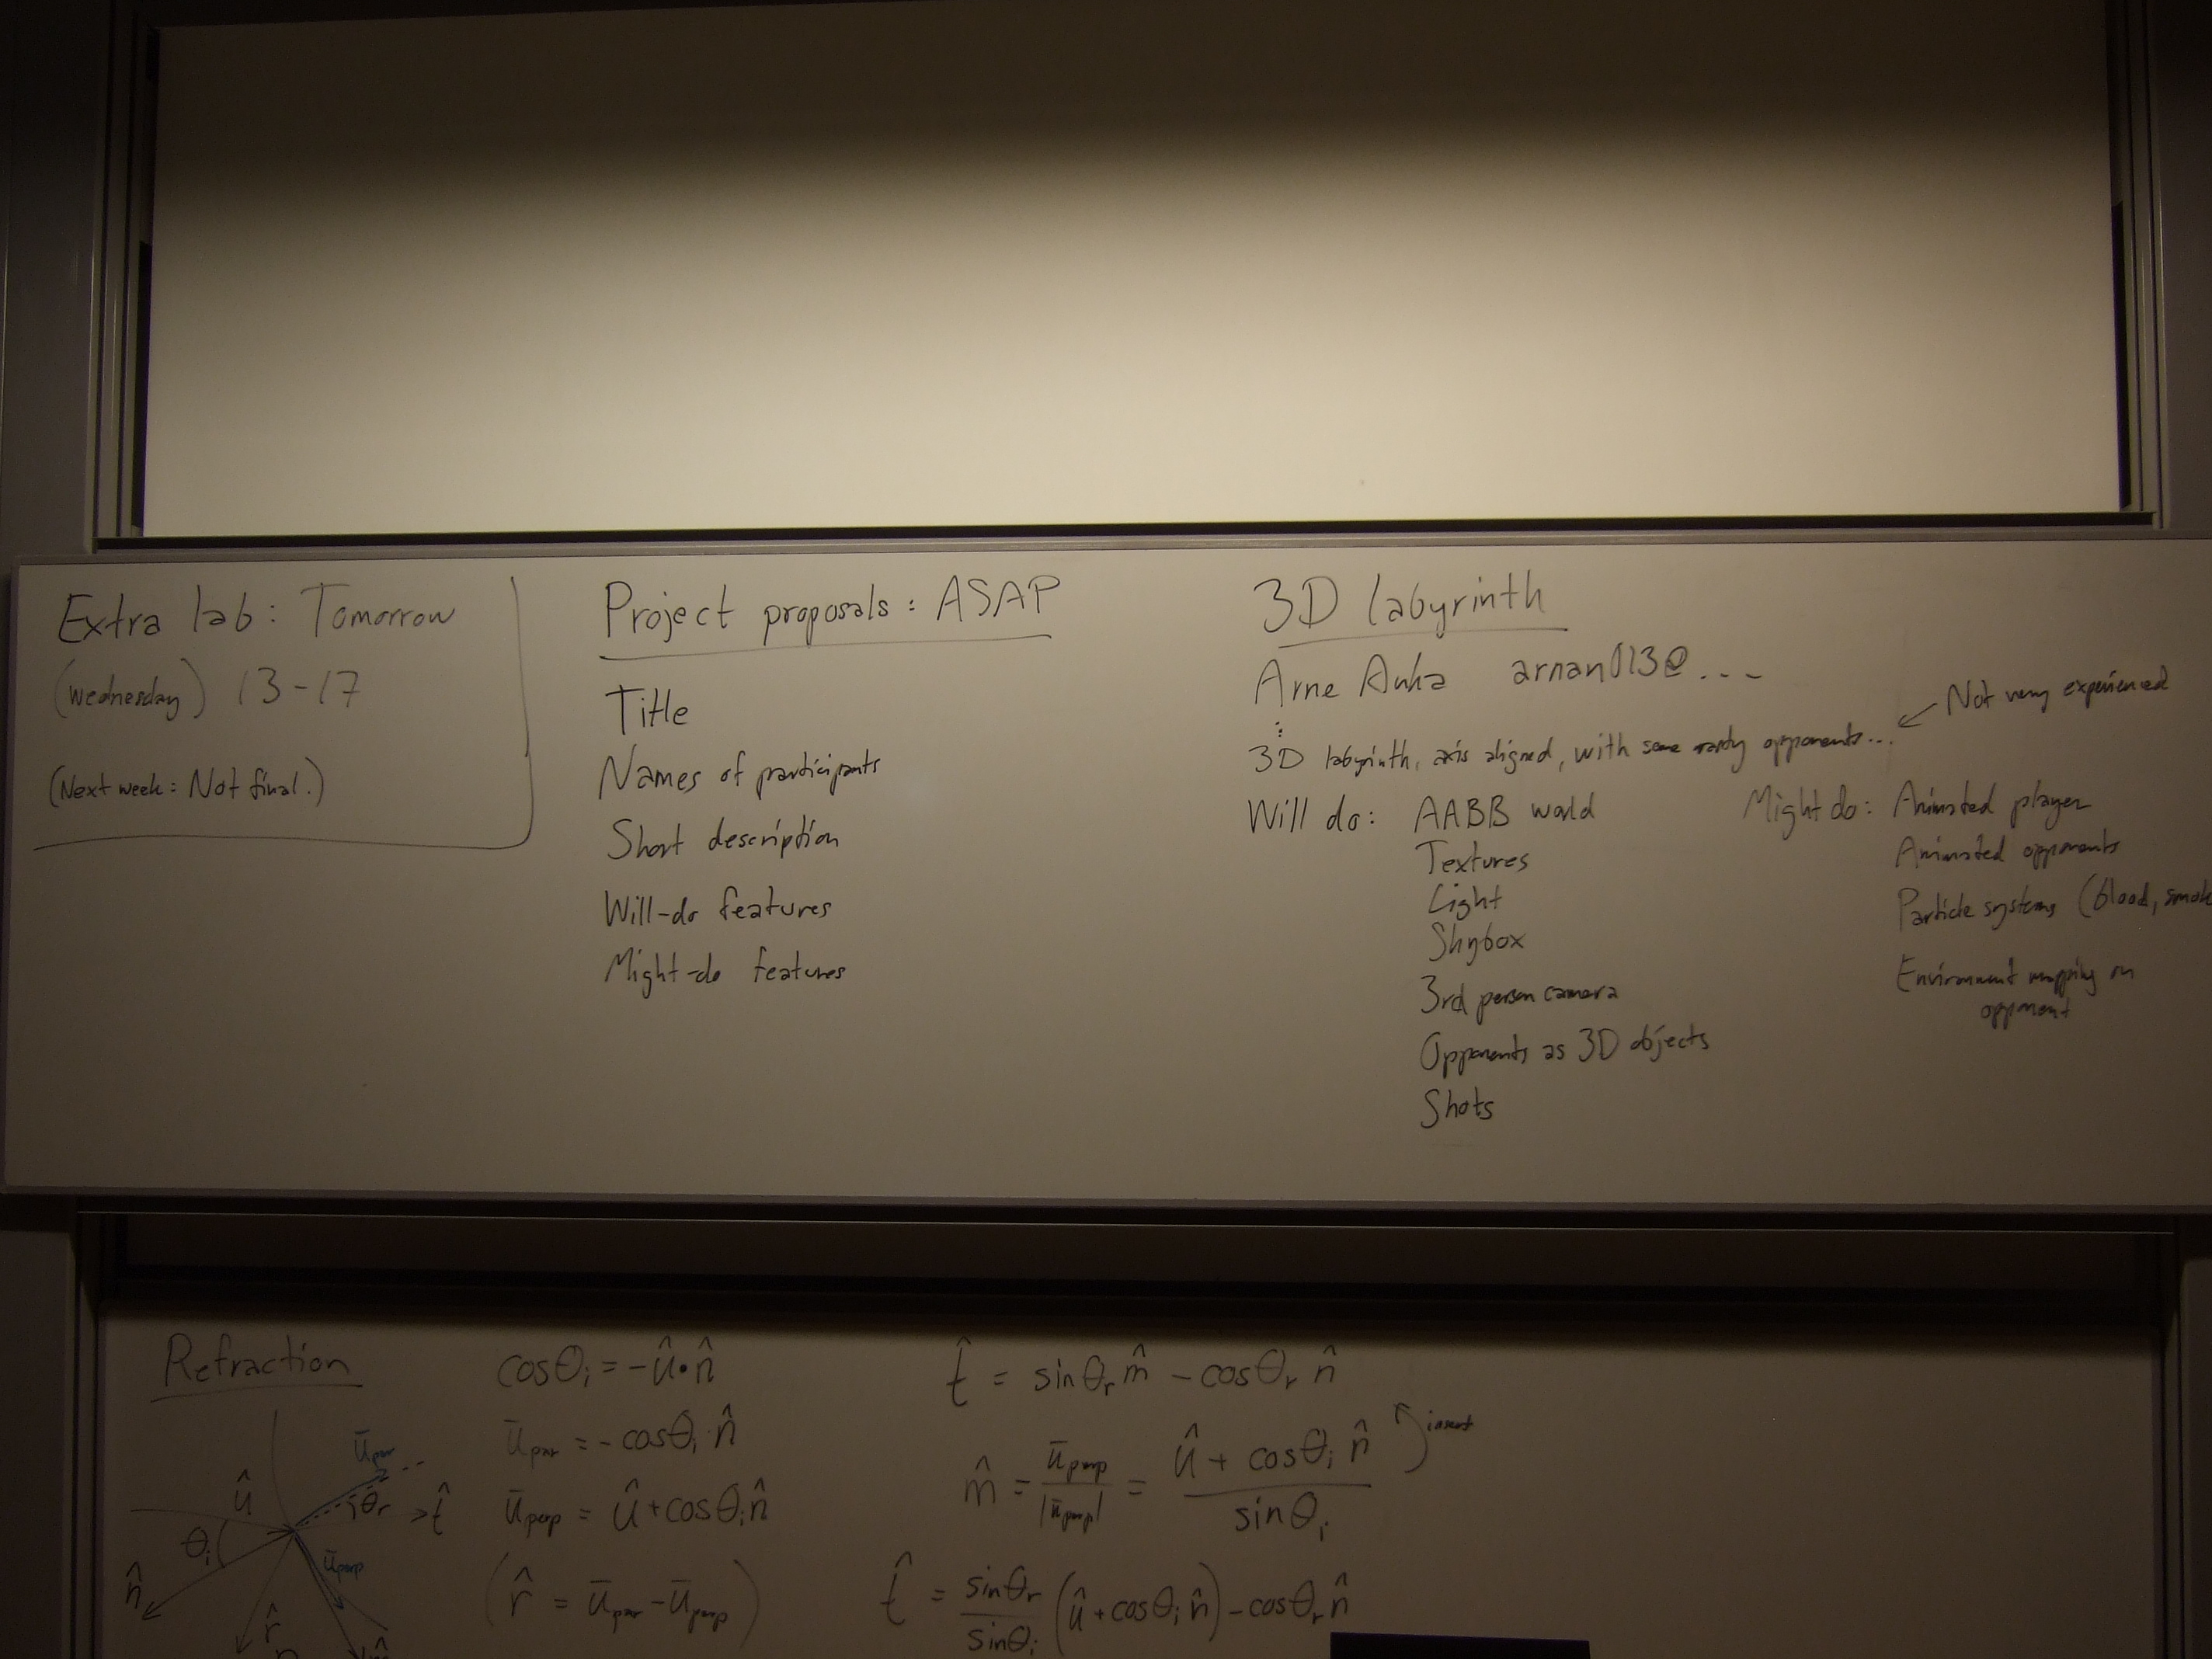 Extra lab: Tomorrow
(Wednesday) 13-17
(Next week: Not final.)
Project proposals: ASAP
Title
Names of participants
Short description
Will-do features
Might-do features
3D labyrinth
Arne Anka arnan013@...
⋮
3D labyrinth, axis aligned, with some nasty opponents...
← Not very experienced
Will do: AABB world
Textures
Light
Skybox
3rd person camera
Opponents as 3D objects
Shots
Might do: Animated player
Animated opponents
Particle systems (blood, smok
Environment mapping on
opponent
Refraction
û
θi
n̂
r̂
ūpar
θr
t̂
ūperp
m̂
cosθi = -û•n̂
ūpar = -cosθi n̂
ūperp = û+cosθi n̂
(r̂ = ūpar - ūperp)
t̂ = sinθr m̂ - cosθr n̂
insert
m̂ = ūperp/|ūperp| = (û + cosθi n̂)/sinθi
t̂ = sinθr/sinθi (û+cosθi n̂) - cosθr n̂